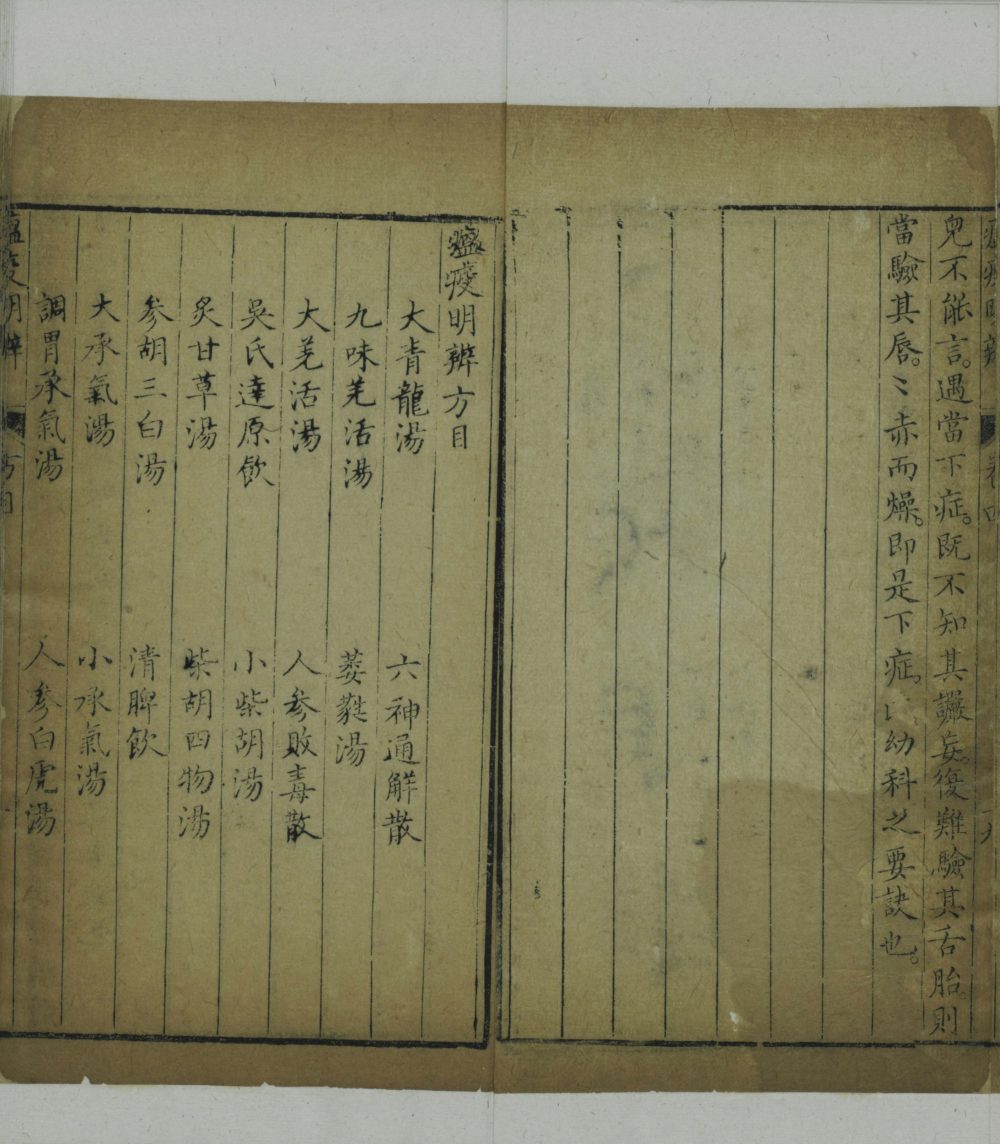 瘟疫明辨 卷四 十九
兒不能言。遇當下症。既不知其讝妄。復難驗其舌胎。則
當驗其唇。〻赤而燥。即是下症。此幼科之要訣也。
瘟疫明辨方目
大青龍湯 六神通解散
九味羌活湯 葳蕤湯
大羌活湯 人參敗毒散
吳氏達原飲 小柴胡湯
炙甘草湯 柴胡四物湯
參胡三白湯 清脾飲
大承氣湯 小承氣湯
調胃承氣湯 人參白虎湯
瘟疫明辨 方目